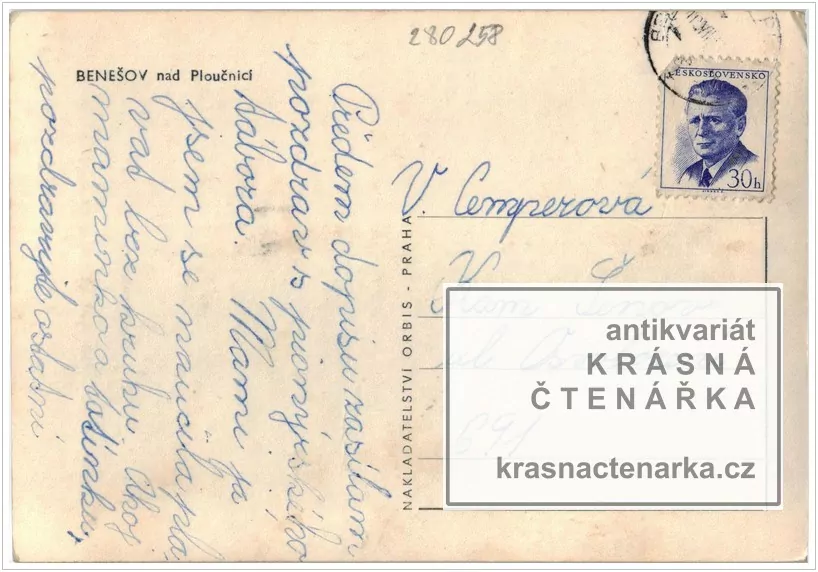 280258
BENEŠOV nad Ploučnicí
Předem dopisu zasílám
pozdrav z pionýrského
tábora. Mami ja
jsem se naučila pla
vat bez kruhu. Ahoj
maminko a tatínku,
pozdravuje ostatní
NAKLADATELSTVÍ ORBIS - PRAHA
ČESKOSLOVENSKO
30h
V. Cemperová
Kam. Šenov
ul
antikvariát
KRÁSNÁ
ČTENÁŘKA
krasnactenarka.cz